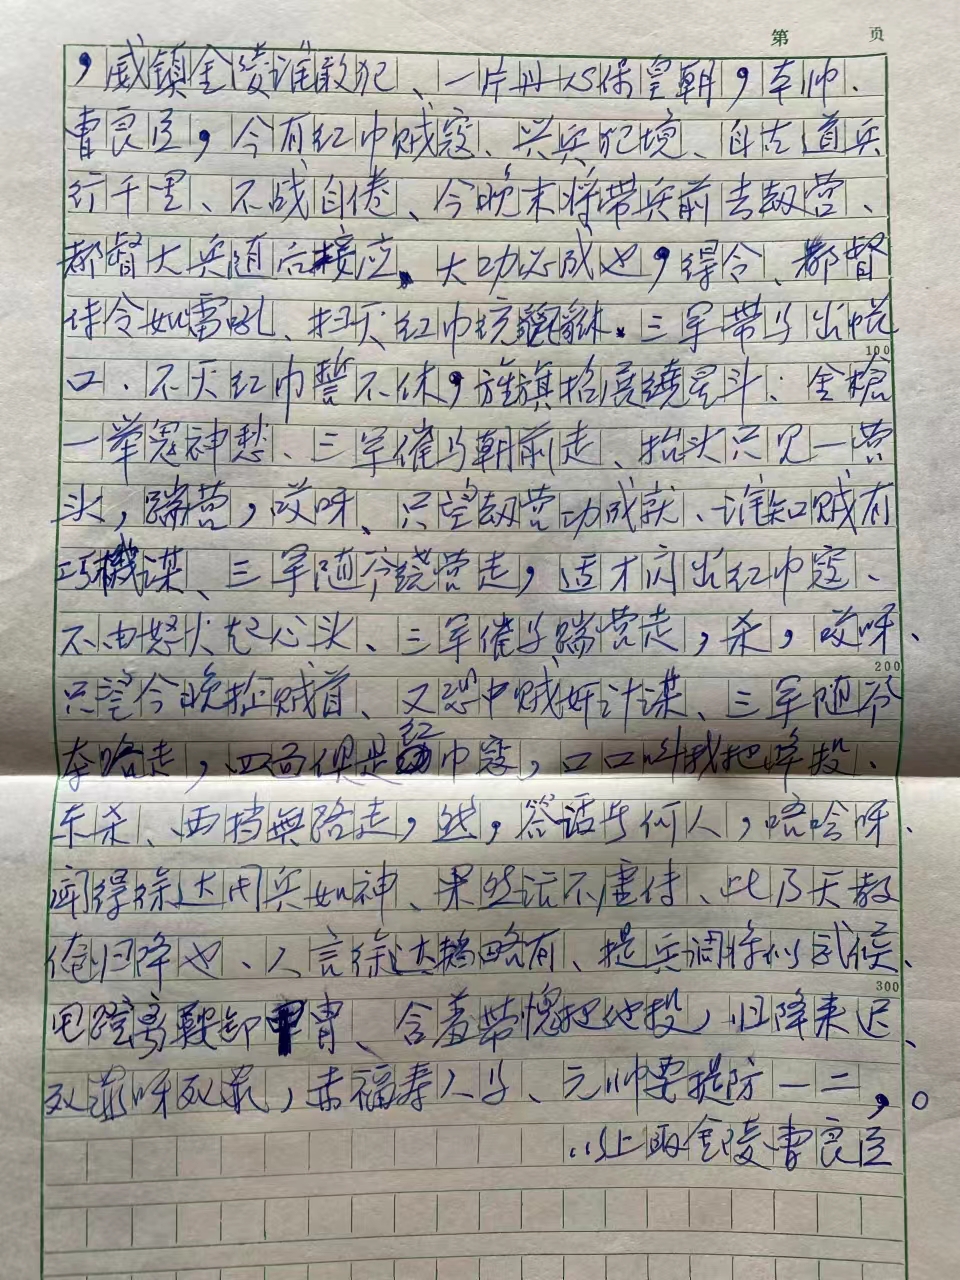 第 页
，威鎮金陵谁敢犯、一片丹心保皇朝，本帅、
曹良臣，今有红巾贼寇、兴兵犯境、自古道兵
行千里、不战自倦、今晚末将带兵前去刼营、
都督大兵随后接应、大功必成也，得令、都督
传令如雷吼、扫灭红巾统貔貅。三军带马出营
100
口、不灭红巾誓不休，旌旗招展繞星斗：金槍
一举鬼神愁、三军催马朝前走、抬头只见一营
头，踹营，哎呀、只望刼营功成就、谁知贼有
巧機谋、三军随爷繞营走，适才闪出红巾寇、
不由怒火起心头、三军催马踹营走，杀，哎呀、
200
只望今晚擒贼首、又恐中贼奸计谋、三军随爷
夺路走，四面俱是红巾寇，口口叫我把降投、
东杀、西挡無路走，然，答话与何人，唔哙呀、
闻得徐达用兵如神、果然话不虚传、此乃天教
俺归降也、人言徐达韬略有、提兵调将似武侯、
300
甩镫离鞍卸甲胄、含羞带愧把他投，归降来迟、
死罪呀死罪，赤福寿人马、元帅要提防一二，。
以上取金陵曹良臣